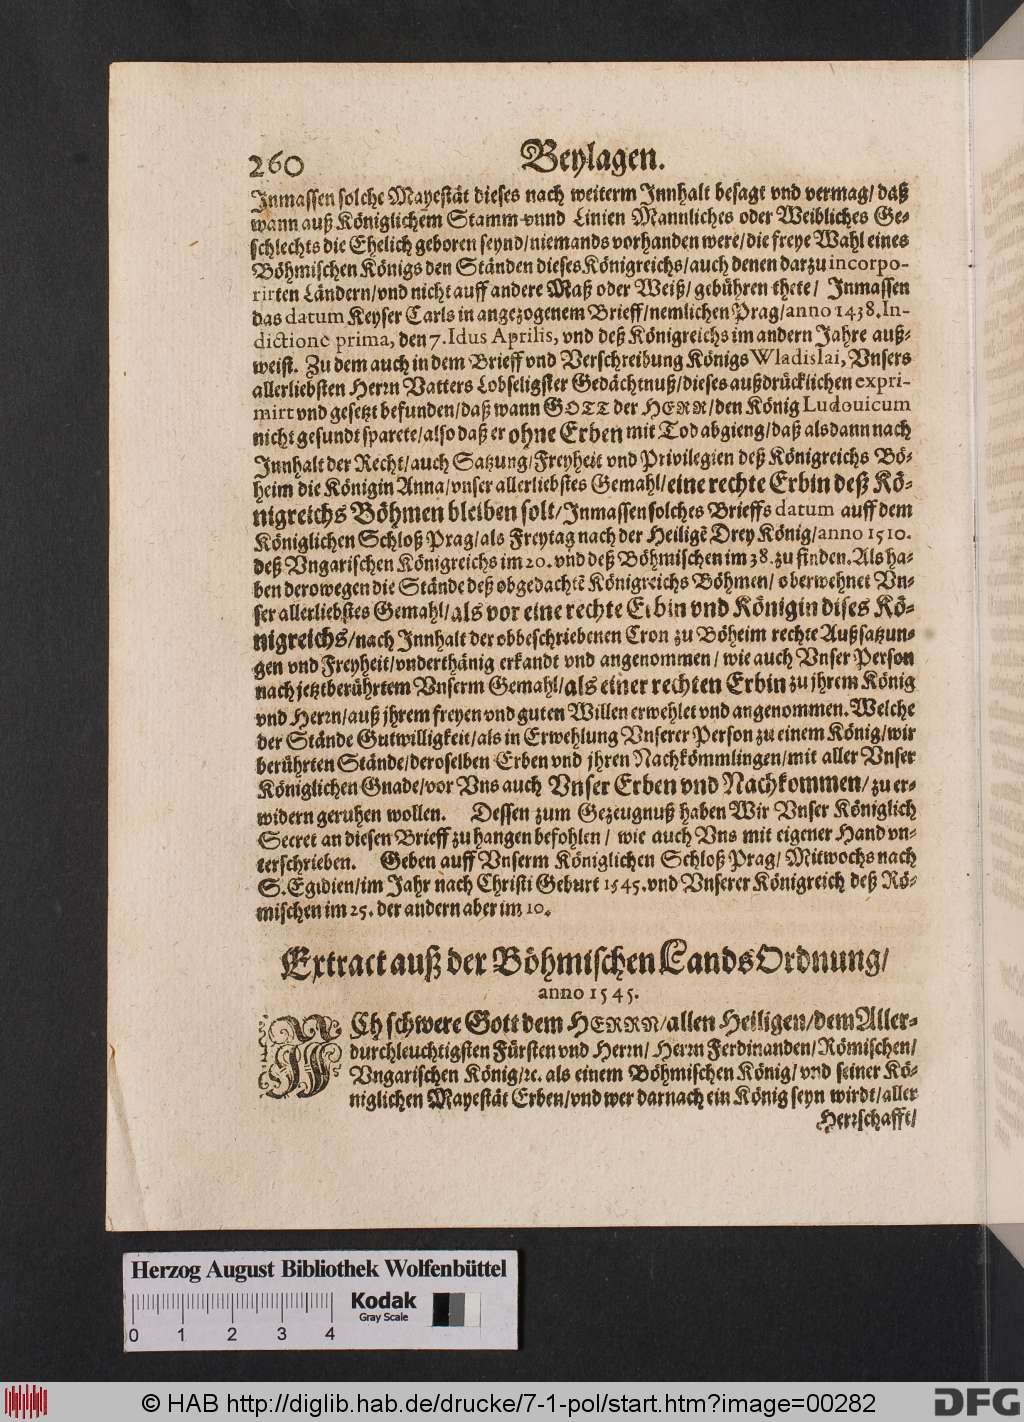 260 Beylagen.
Inmassen solche Mayestät dieses nach weiterm Innhalt besagt vnd vermag/ daß
wann auß Königlichem Stamm vnnd Linien Mannliches oder Weibliches Ge-
schlechts die Ehelich geboren seynd/niemands vorhanden were/die freye Wahl eines
Böhmischen Königs den Ständen dieses Königreichs/auch denen darzu incorpo-
rirten Ländern/vnd nicht auff andere Maß oder Weiß/ gebühren thete/ Inmassen
das datum Keyser Carls in angezogenem Brieff/nemlichen Prag/anno 1438. In-
dictione prima, den 7. Idus Aprilis, vnd deß Königreichs im andern Jahre auß-
weist. Zu dem auch in dem Brieff vnd Verschreibung Königs Wladislai, Vnsers
allerliebsten Herrn Vatters Lobseligster Gedächtnuß/dieses außdrücklichen expri-
mirt vnd gesetzt befunden/daß wann GOTT der HERR/den König Ludouicum
nicht gesundt sparete/also daß er ohne Erben mit Tod abgieng/daß alsdann nach
Innhalt der Recht/auch Satzung/Freyheit vnd Privilegien deß Königreichs Bö-
heim die Königin Anna/vnser allerliebstes Gemahl/eine rechte Erbin deß Kö-
nigreichs Böhmen bleiben solt/Inmassen solches Brieffs datum auff dem
Königlichen Schloß Prag/als Freytag nach der Heiligē Drey König/anno 1510.
deß Vngarischen Königreichs im 20. vnd deß Böhmischen im 38. zu finden. Als ha-
ben derowegen die Stände deß obgedachtē Königreichs Böhmen/ oberwehnet Vn-
ser allerliebstes Gemahl/als vor eine rechte Erbin vnd Königin dises Kö-
nigreichs/nach Innhalt der obbeschriebenen Cron zu Böheim rechte Außsatzun-
gen vnd Freyheit/vnderthänig erkandt vnd angenommen/ wie auch Vnser Person
nach jetztberührtem Vnserm Gemahl/als einer rechten Erbin zu jhrem König
vnd Herrn/auß jhrem freyen vnd guten Willen erwehlet vnd angenommen. Welche
der Stände Gutwilligkeit/als in Erwehlung Vnserer Person zu einem König/wir
berührten Stände/deroselben Erben vnd jhren Nachkömmlingen/mit aller Vnser
Königlichen Gnade/vor Vns auch Vnser Erben vnd Nachkommen/ zu er-
widern geruhen wollen. Dessen zum Gezeugnuß haben Wir Vnser Königlich
Secret an diesen Brieff zu hangen befohlen/ wie auch Vns mit eigener Hand vn-
terschrieben. Geben auff Vnserm Königlichen Schloß Prag/ Mitwochs nach
S. Egidien/im Jahr nach Christi Geburt 1545. vnd Vnserer Königreich deß Rö-
mischen im 25. der andern aber im 10.
Extract auß der Böhmischen Lands Ordnung/
anno 1545.
ICh schwere Gott dem HERRN/allen Heiligen/dem Aller-
durchleuchtigsten Fürsten vnd Herrn/ Herrn Ferdinanden/Römischen/
Vngarischen König/ꝛc. als einem Böhmischen König/ vnd seiner Kö-
niglichen Mayestät Erben/vnd wer darnach ein König seyn wirdt/aller
Herrschafft/
Herzog August Bibliothek Wolfenbüttel
0 1 2 3 4
Kodak
Gray Scale
© HAB http://diglib.hab.de/drucke/7-1-pol/start.htm?image=00282
DFG